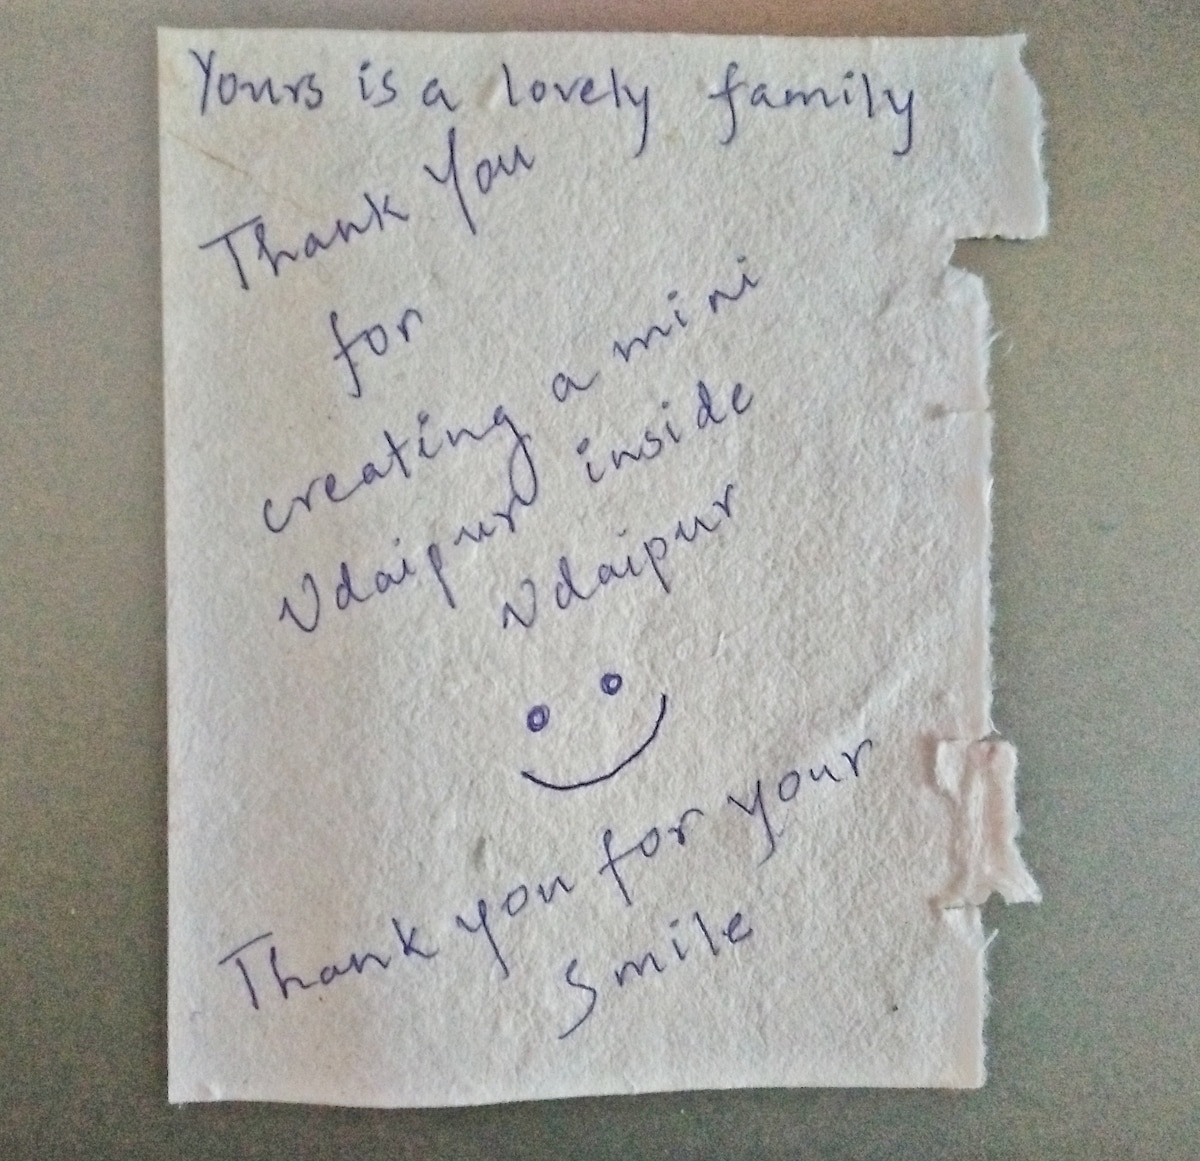 Yours is a lovely family
Thank You
for
creating a mini
Udaipur inside
Udaipur
Thank you for your
Smile